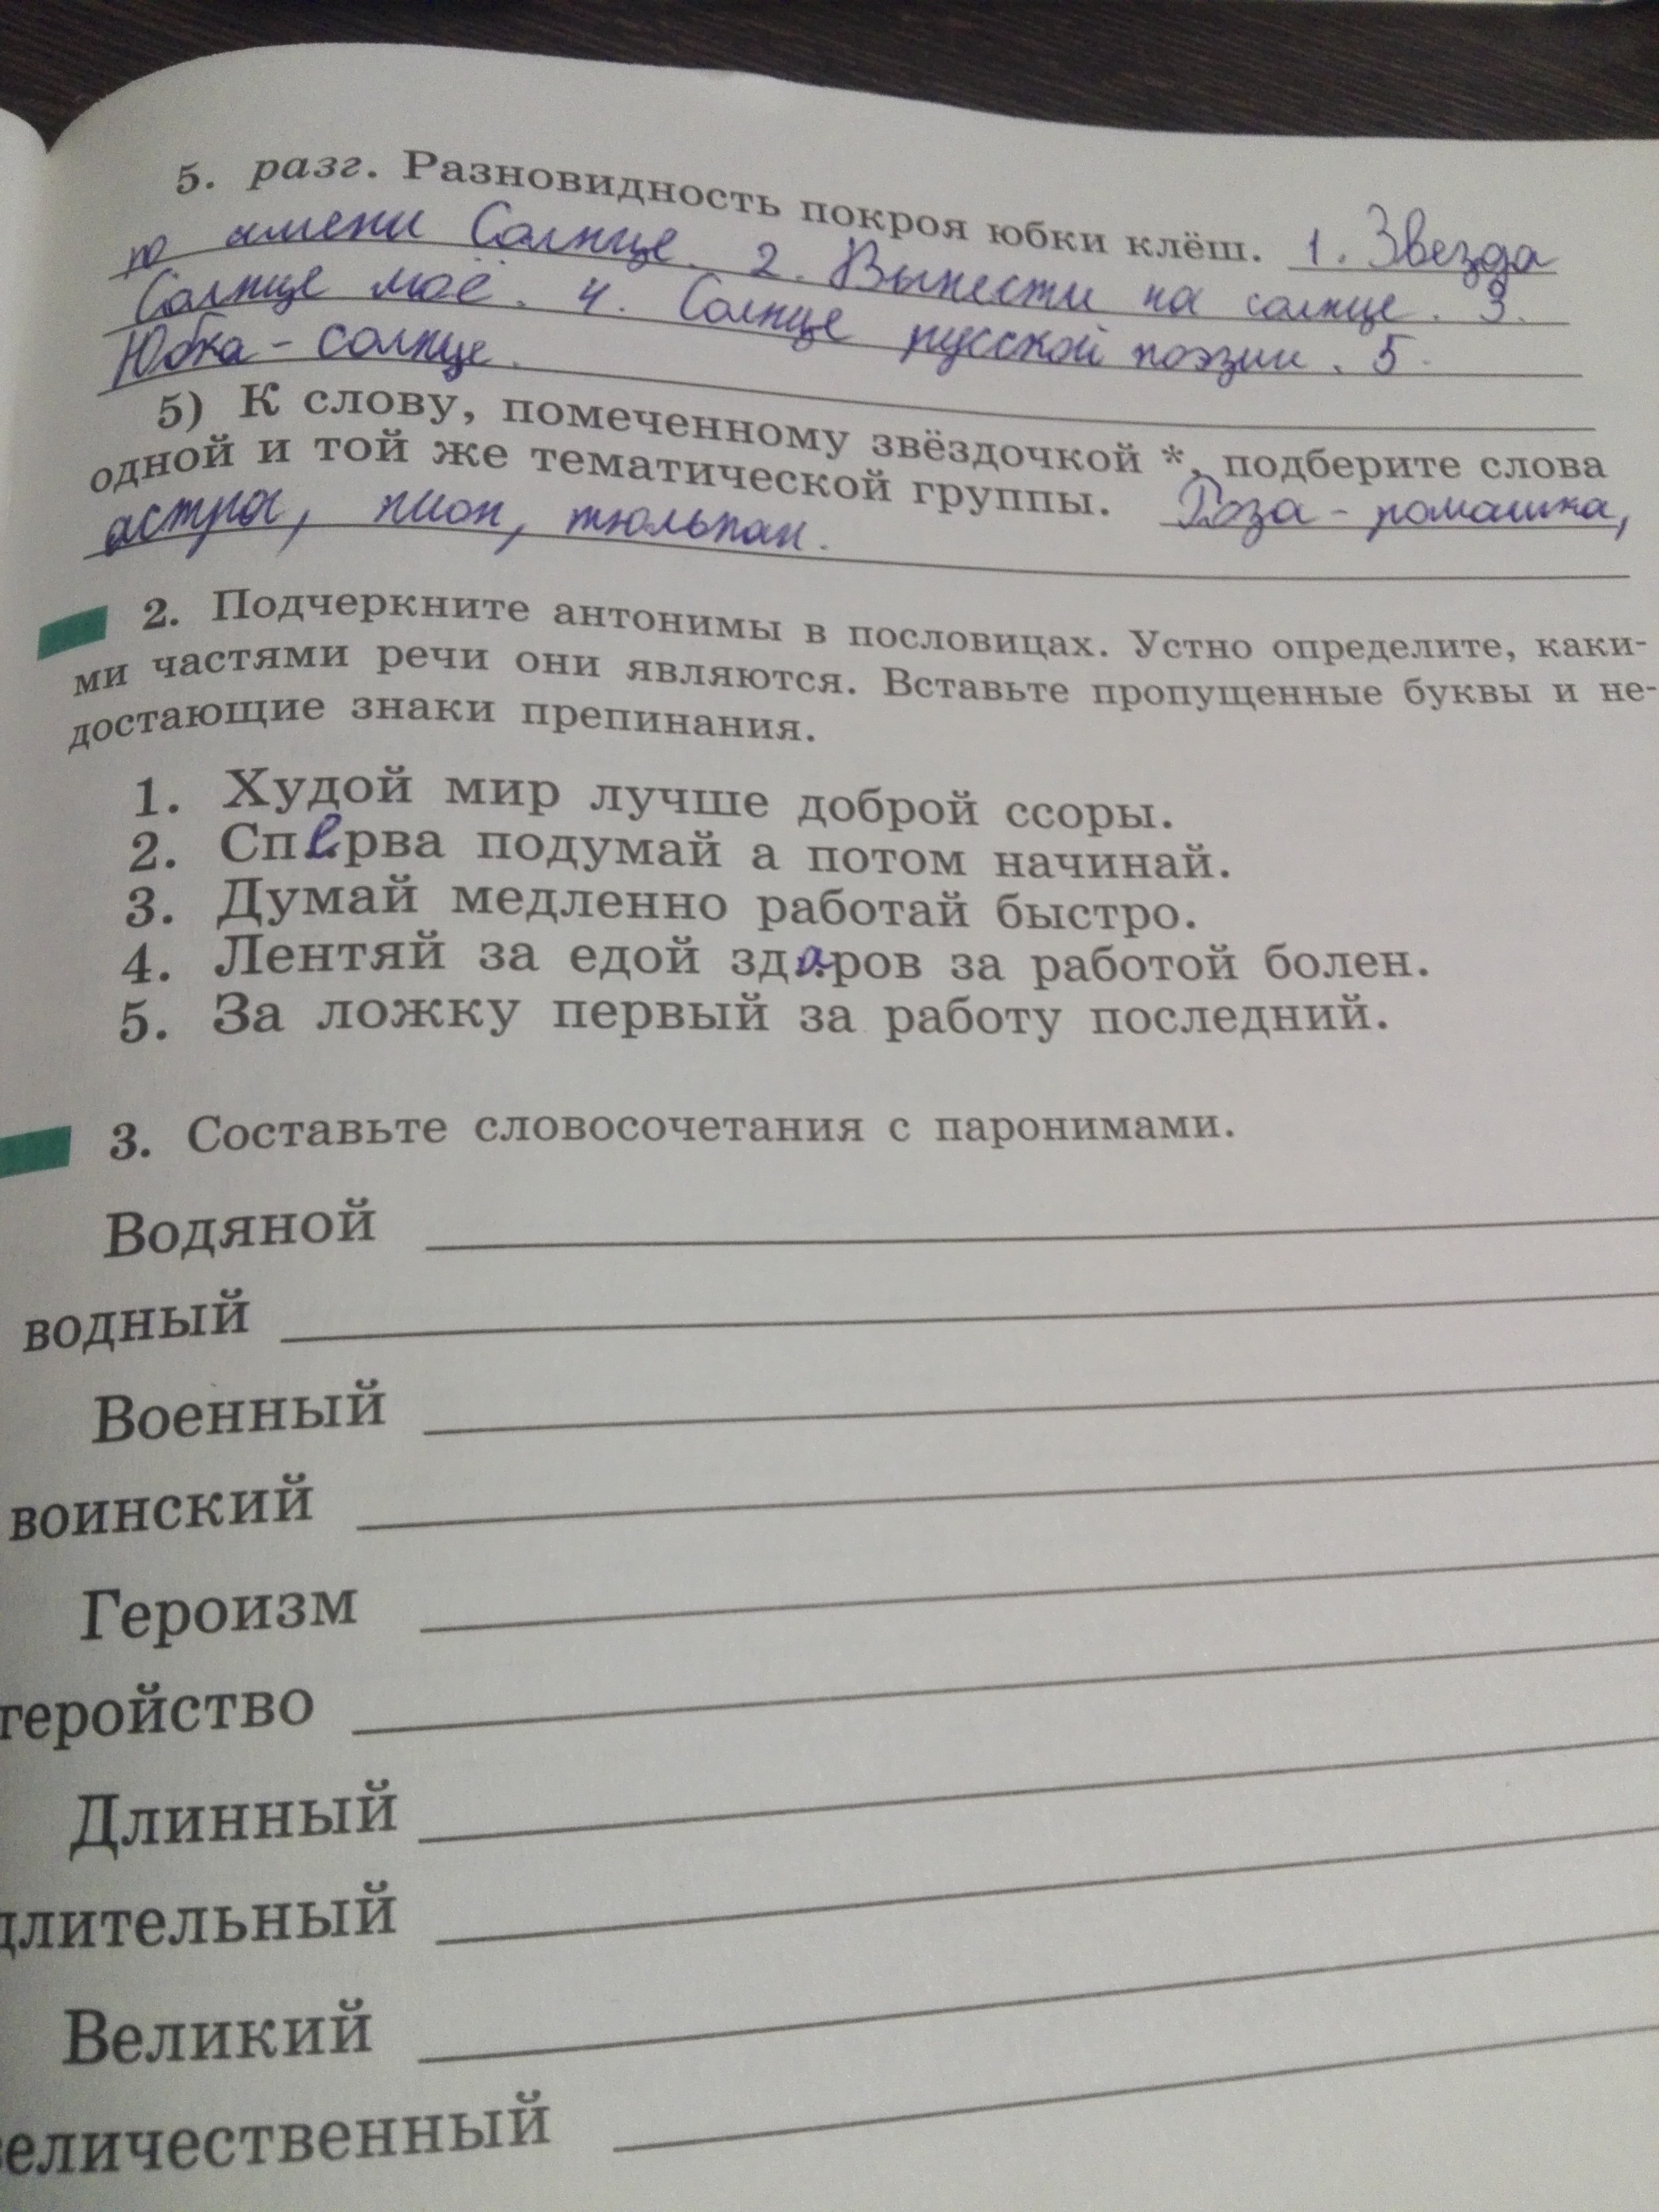 5. разг. Разновидность покроя юбки клёш. 1. Звезда
по имени Солнце. 2. Вынести на солнце. 3.
Солнце моё. 4. Солнце русской поэзии. 5.
Юбка - солнце.
5) К слову, помеченному звёздочкой *, подберите слова
одной и той же тематической группы. Роза - ромашка,
астра, пион, тюльпан.
2. Подчеркните антонимы в пословицах. Устно определите, каки-
ми частями речи они являются. Вставьте пропущенные буквы и не-
достающие знаки препинания.
1. Худой мир лучше доброй ссоры.
2. Сперва подумай а потом начинай.
3. Думай медленно работай быстро.
4. Лентяй за едой здаров за работой болен.
5. За ложку первый за работу последний.
3. Составьте словосочетания с паронимами.
Водяной
водный
Военный
воинский
Героизм
геройство
Длинный
длительный
Великий
величественный